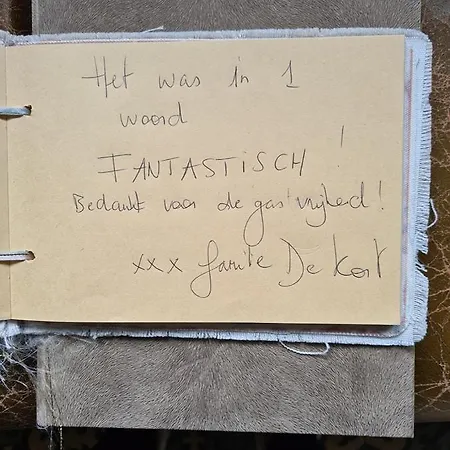 Het was in 1
woord
FANTASTISCH !
Bedankt voor de gastvrijheid!
xxx familie De Kort